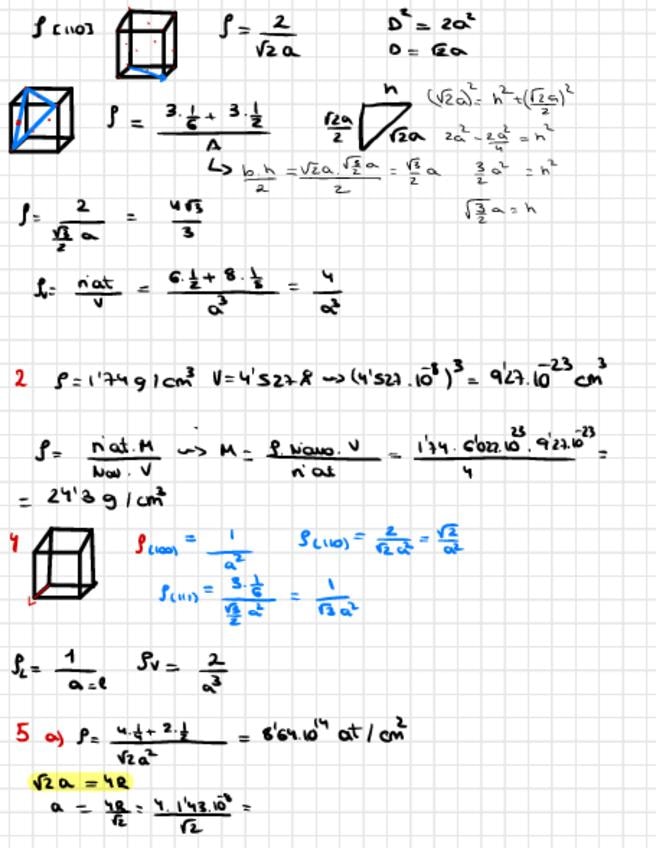 ρ[110] ρ = 2/(√2 a) D² = 2a²
D = √2a
ρ = (3·1/6 + 3·1/2)/A √2a/2 h √2a (√2a)² = h² + (√2a/2)²
2a² - 2a²/4 = h²
↳ b·h/2 = (√2a·√(3/2) a)/2 = √3/2 a 3/2 a² = h²
√(3/2) a = h
ρ = 2/(√3/2 a) = 4√3/3
ρ = nºat/V = (6·1/2 + 8·1/8)/a³ = 4/a³
2 ρ = 1'74 g/cm³ V = 4'527 Å ⇝ (4'527·10⁻⁸)³ = 9'27·10⁻²³ cm³
ρ = nºat·M/(Nav·V) ⇝ M = (ρ·Navo·V)/nºat = (1'74·6'022·10²³·9'27·10⁻²³)/4 =
= 24'3 g/cm³
4 ρ(100) = 1/a² ρ(110) = 2/(√2 a²) = √2/a²
ρ(111) = (3·1/6)/(√3/2 a²) = 1/(√3 a²)
ρL = 1/(a=l) ρV = 2/a³
5 a) ρ = (4·1/4 + 2·1/2)/(√2a²) = 8'64·10¹⁴ at/cm²
√2 a = 4R
a = 4R/√2 = (4·1'43·10⁻⁸)/√2 =